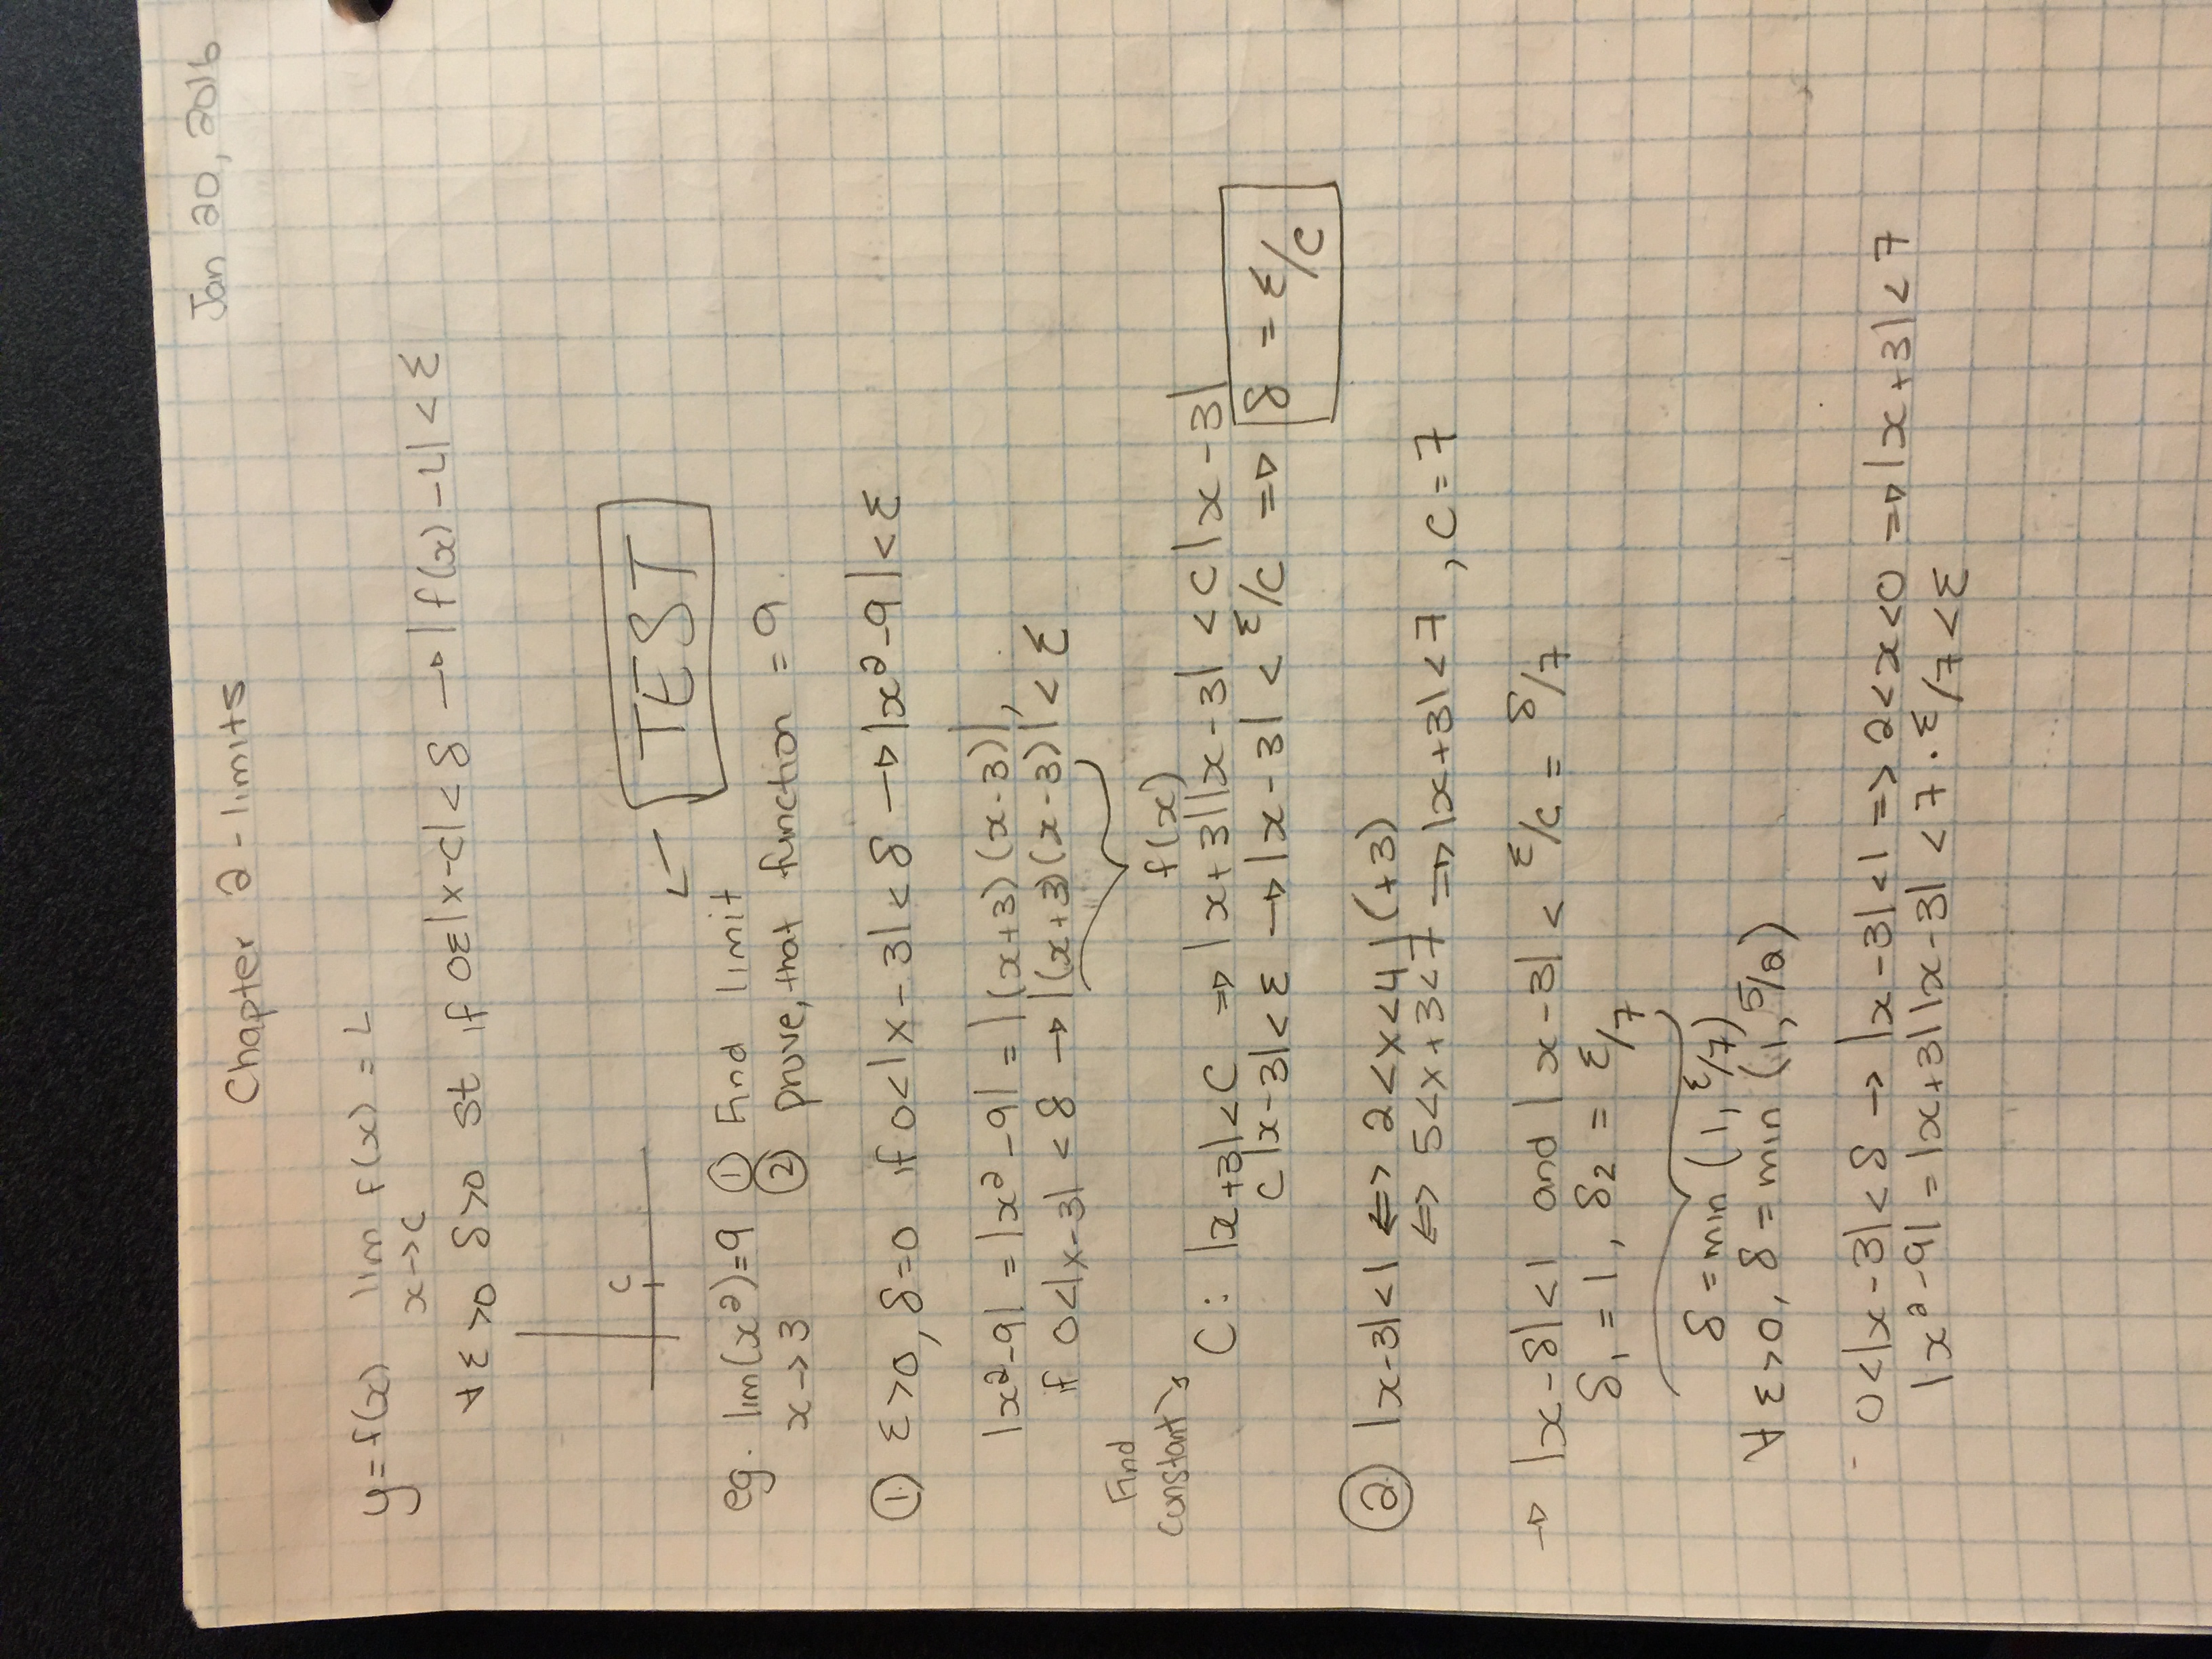 Jan 20, 2016
Chapter 2 - limits
y = f(x) lim f(x) = L
x→c
∀ ε >0 δ>0 st if 0≤|x-c|<δ → |f(x)-L|<ε
C
TEST
eg. lim(x²)=9 ① Find limit
x→3 ② prove, that function = 9
① ε>0, δ=0 if 0<|x-3|<δ → |x²-9|<ε
|x²-9| = |x²-9| = |(x+3)(x-3)|,
if 0<|x-3|<δ → |(x+3)(x-3)|<ε
Find f(x)
constant's C: |x+3|<C ⇒ |x+3||x-3| <C|x-3|
C|x-3|<ε → |x-3| < ε/C ⇒ δ = ε/C
② |x-3|<1 ⇔ 2<x<4 | (+3)
⇔ 5<x+3<7 ⇒ |x+3|<7, C=7
→ |x-δ|<1 and |x-3| < ε/C = δ/7
δ₁ = 1, δ₂ = ε/7
δ = min (1, ε/7)
∀ ε>0, δ = min (1, 5/2)
0<|x-3|<δ → |x-3|<1 => 2<x<0 ⇒ |x+3|<7
|x²-9| = |x+3||x-3| <7·ε/7<ε